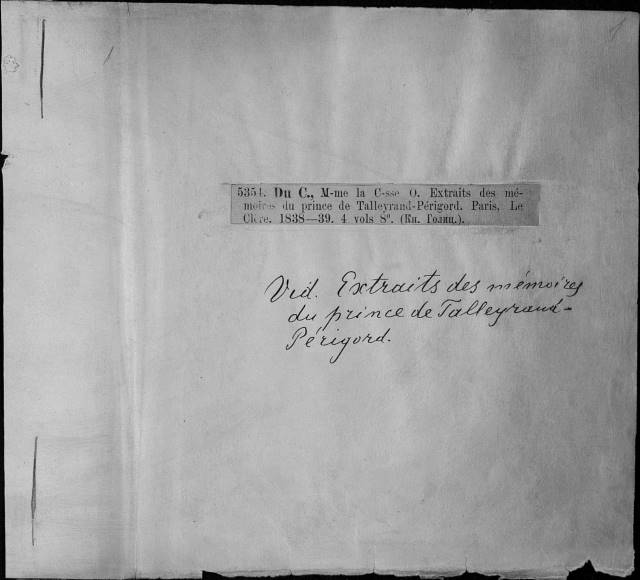 5354. Du C., M-me la C-sse O. Extraits des mé-
moires du prince de Talleyrand-Périgord. Paris, Le
Clère. 1838—39. 4 vols 8°. (Кн. Голиц.).
Vid. Extraits des mémoires
du prince de Talleyrand-
Périgord.